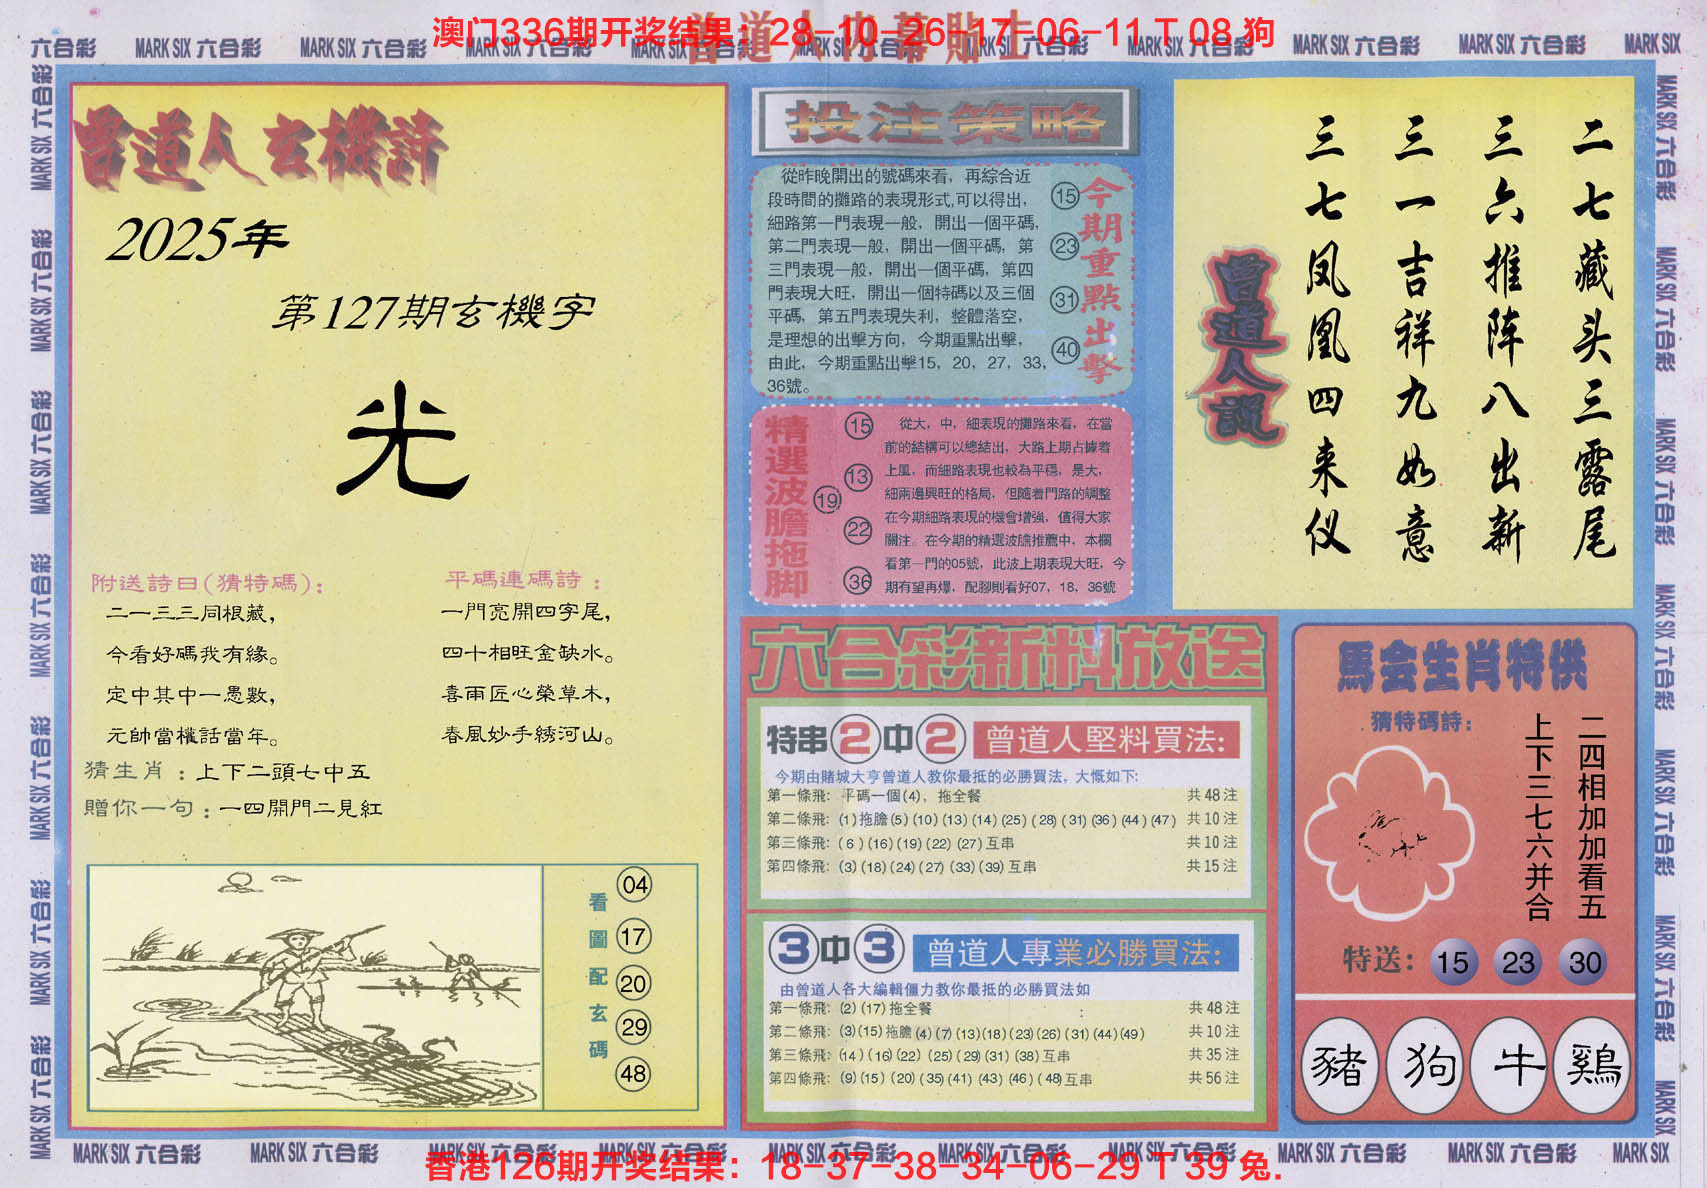 澳门336期开奖结果：28-10-26-17-06-11 T 08 狗
曾道人内幕貼士
六合彩 MARK SIX 六合彩 MARK SIX 六合彩 MARK SIX 六合彩 MARK SIX 六合彩 MARK SIX 六合彩 MARK SIX
曾道人玄機詩
2025年
第127期玄機字
光
附送詩曰(猜特碼)：
二一三三同根藏，
今看好碼我有緣。
定中其中一愚數，
元帥當權話當年。
平碼連碼詩：
一門亮開四字尾，
四十相旺金缺水。
喜雨匠心榮草木，
春風妙手綉河山。
猜生肖：上下二頭七中五
贈你一句：一四開門二見紅
看圖配玄碼
04
17
20
29
48
投注策略
從昨晚開出的號碼來看，再綜合近
段時間的攤路的表現形式,可以得出，
細路第一門表現一般，開出一個平碼，
第二門表現一般，開出一個平碼，第
三門表現一般，開出一個平碼，第四
門表現大旺，開出一個特碼以及三個
平碼，第五門表現失利，整體落空，
是理想的出擊方向，今期重點出擊，
由此，今期重點出擊15，20，27，33，
36號。
今期重點出擊
15
23
31
40
精選波膽拖脚
15
13
19
22
36
從大，中，細表現的攤路來看，在當
前的結構可以總結出，大路上期占據着
上風，而細路表現也較為平穩，是大，
細兩邊興旺的格局，但隨着門路的調整
在今期細路表現的機會增強，值得大家
關注。在今期的精選波膽推薦中，本欄
看第一門的05號，此波上期表現大旺，今
期有望再爆，配腳則看好07，18，36號
二七藏头三露尾
三六推阵八出新
三一吉祥九如意
三七凤凰四来仪
曾道人說
六合彩新料放送
特串2中2 曾道人堅料買法:
今期由賭城大亨曾道人教你最抵的必勝買法，大慨如下:
第一條飛: 平碼一個(4)，拖全餐 共48注
第二條飛: (1)拖膽(5)(10)(13)(14)(25)(28)(31)(36)(44)(47) 共10注
第三條飛: (6)(16)(19)(22)(27)互串 共10注
第四條飛: (3)(18)(24)(27)(33)(39)互串 共15注
3中3 曾道人專業必勝買法:
由曾道人各大編輯僵力教你最抵的必勝買法如
第一條飛: (2)(17)拖全餐 共48注
第二條飛: (3)(15)拖膽(4)(7)(13)(18)(23)(26)(31)(44)(49) 共10注
第三條飛: (14)(16)(22)(25)(29)(31)(38)互串 共35注
第四條飛: (9)(15)(20)(35)(41)(43)(46)(48)互串 共56注
馬会生肖特供
猜特碼詩:
二四相加加看五
上下三七六并合
特送: 15 23 30
豬 狗 牛 鷄
MARK SIX 六合彩 MARK SIX 六合彩 MARK SIX 六合彩 MARK SIX 六合彩 MARK SIX 六合彩 MARK SIX 六合彩 MARK SIX 六合彩 MARK SIX 六合彩 MARK SIX 六合彩 MARK SIX
香港126期开奖结果：18-37-38-34-06-29 T 39 兔.